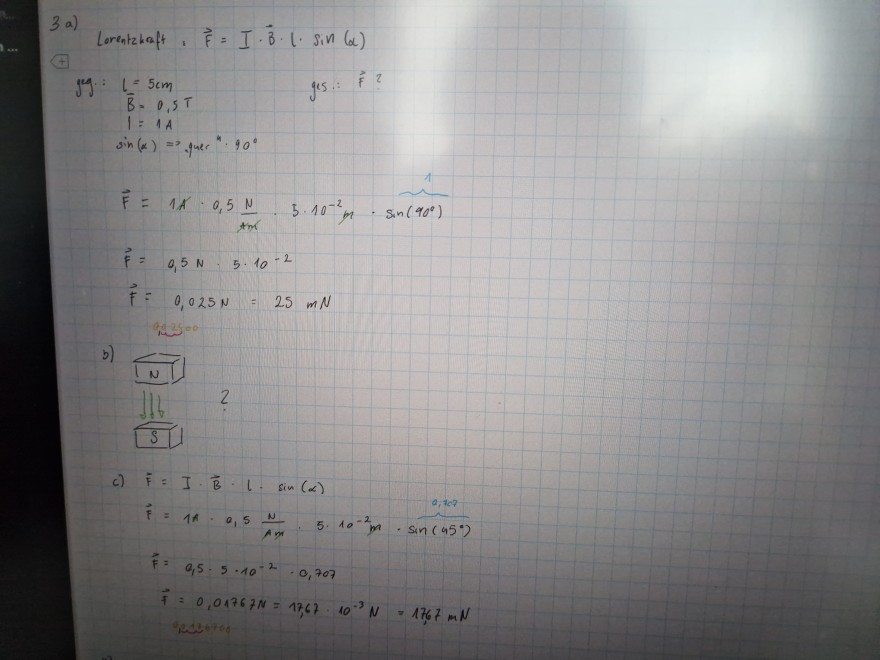 3 a)
Lorentzkraft, F⃗ = I · B⃗ · l · sin (α)
geg.: l = 5cm ges.: F⃗ ?
B⃗ = 0,5 T
I = 1A
sin (α) => „quer" · 90°
1
F⃗ = 1A · 0,5 N/Am · 5·10⁻² m · sin(90°)
F⃗ = 0,5 N · 5·10⁻²
F⃗ = 0,025N = 25 mN
b)
N
?
S
c) F⃗ = I · B⃗ · l · sin (α)
0,707
F⃗ = 1A · 0,5 N/Am · 5·10⁻² m · sin (45°)
F⃗ = 0,5 · 5·10⁻² · 0,707
F⃗ = 0,01767N = 17,67 · 10⁻³ N = 17,67 mN